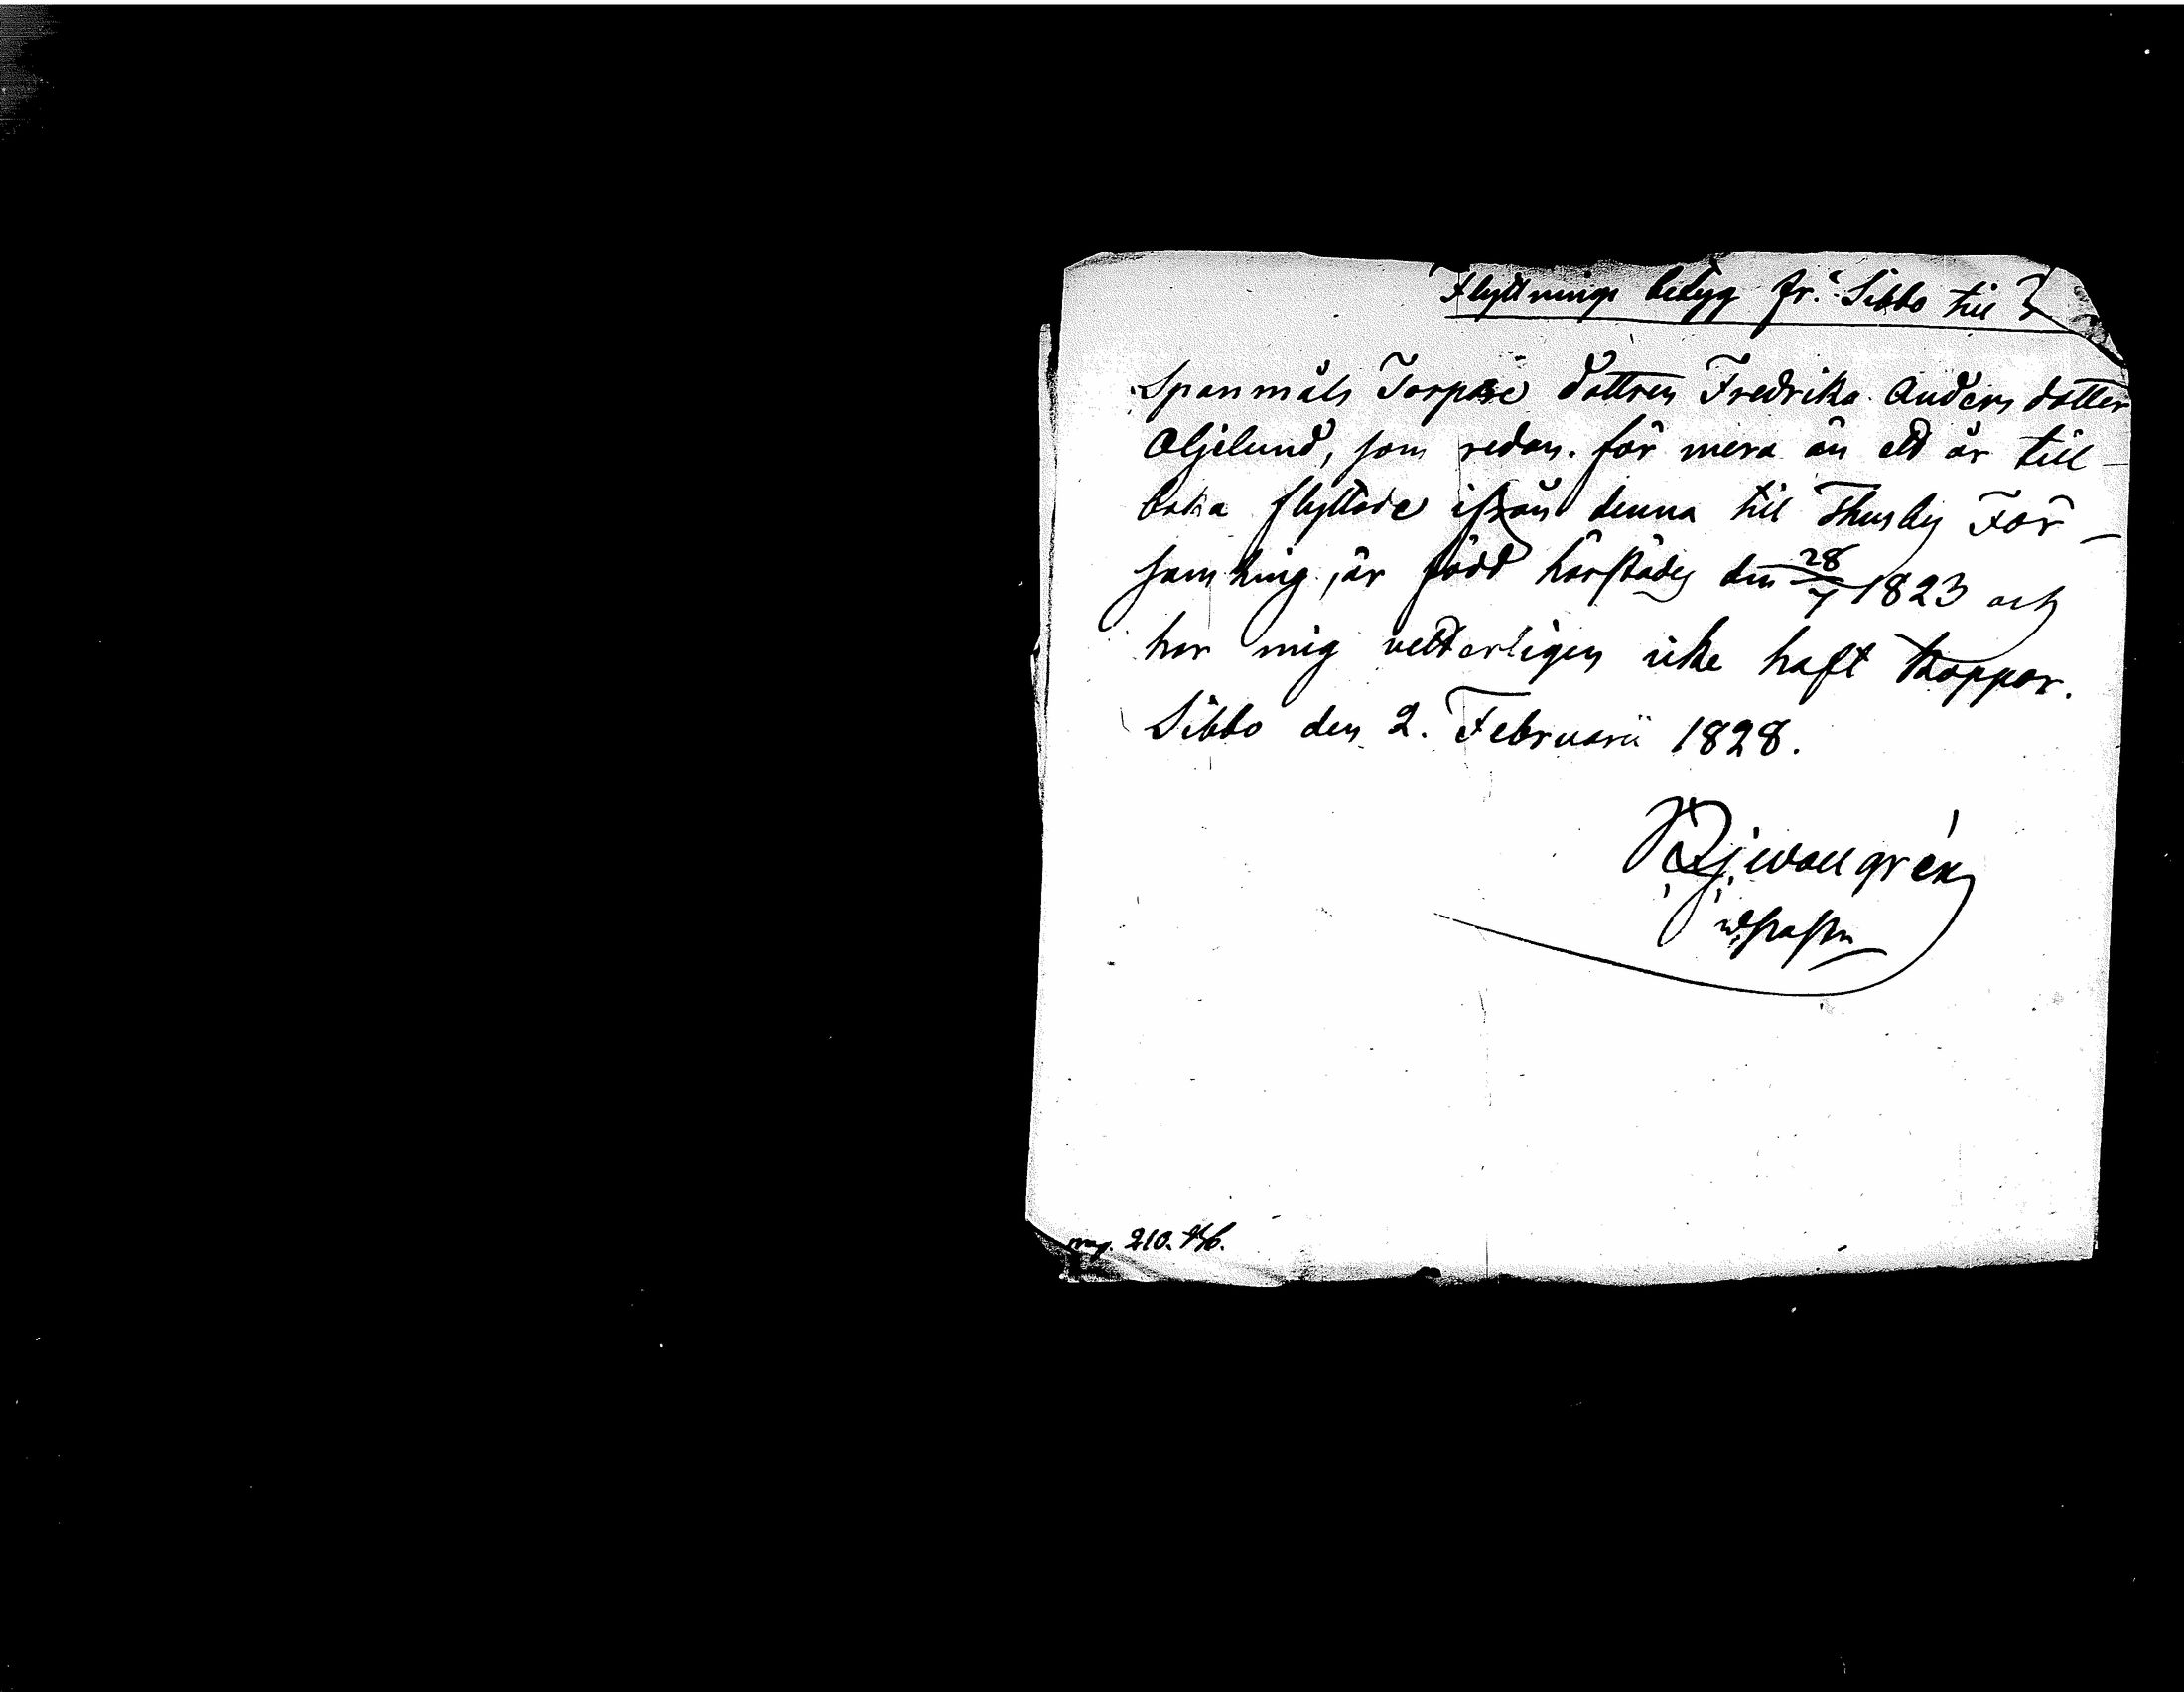 Flyttnings betyg fr. Sibbo till
Spanmåls Torpare dottren Fredrika Anders dotter
Oljelund, som redan för mera än ett år till-
baka flyttade ifrån denna till Thusby För-
samling, är född härstädes den 28/7 1823 och
har mig vetterligen icke haft koppor.
Sibbo den 2. Februarii 1828.
wallgrén
210.